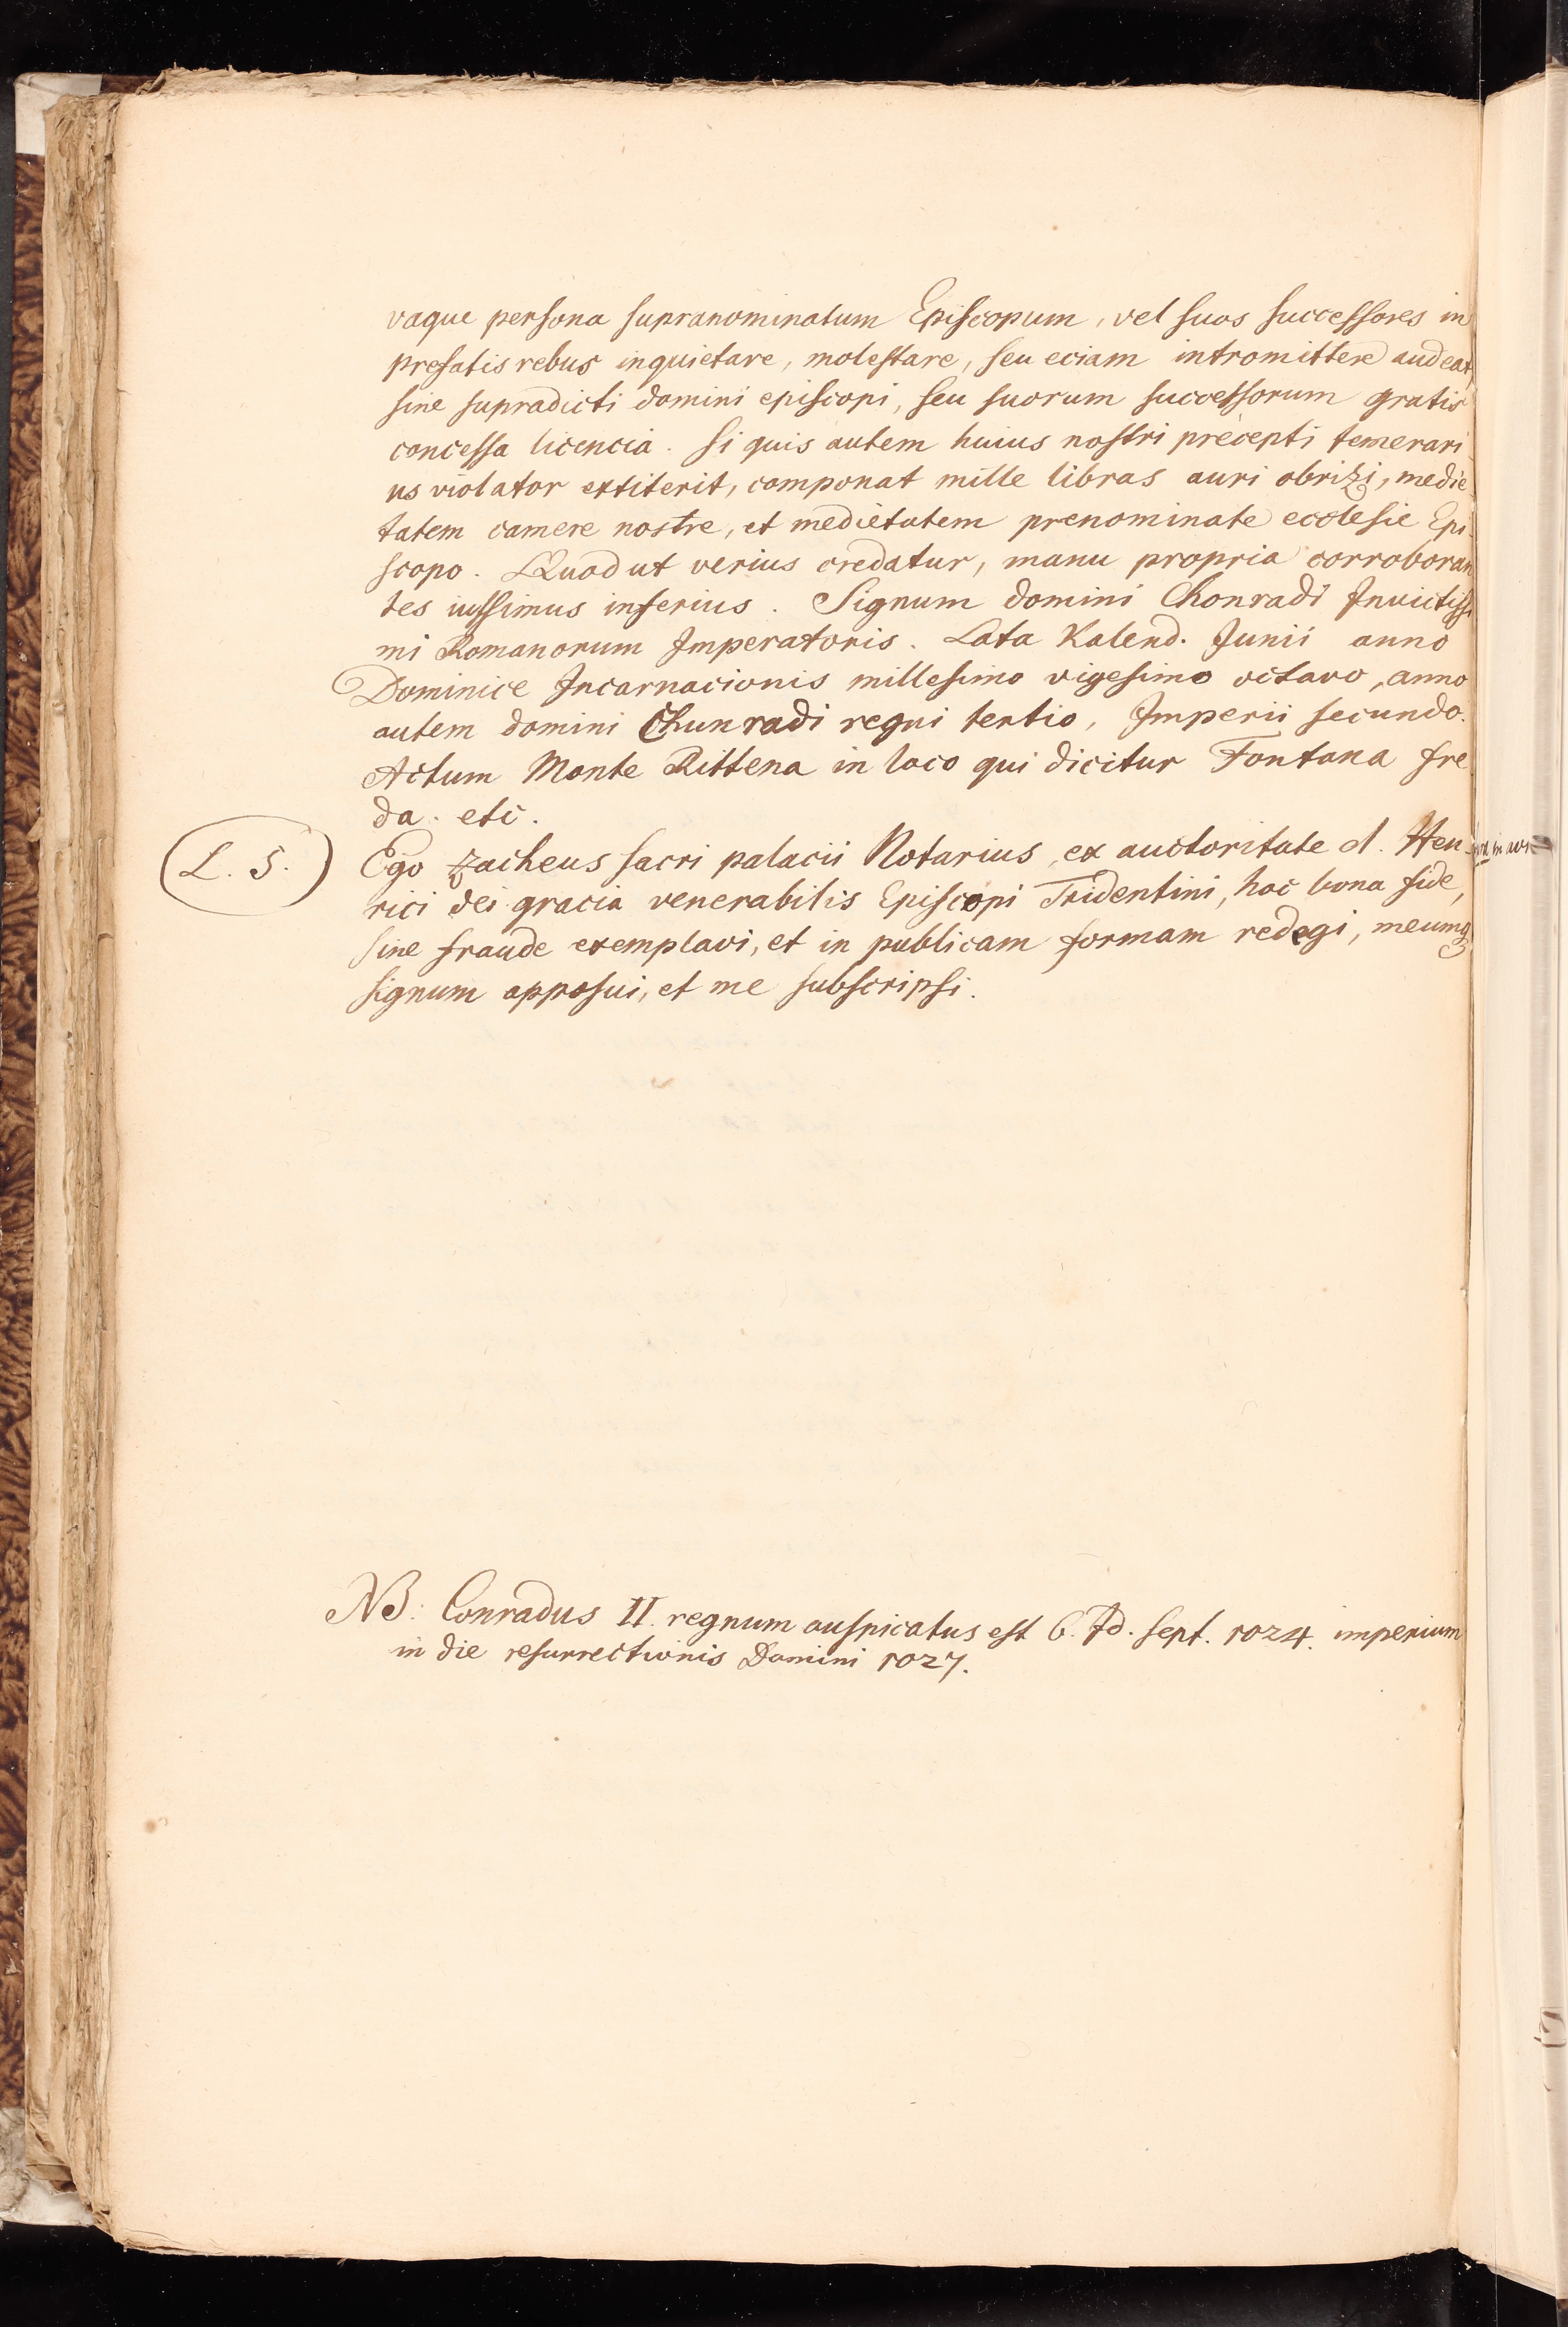 vaque persona supranominatum Episcopum, vel suos successores in
prefatis rebus inquietare, molestare, seu eciam intromittere audeat
sine supradicti domini episcopi, seu suorum successorum gratis
concessa licencia. Si quis autem huius nostri precepti temerari
us violator extiterit, componat mille libras auri obrizi, medie
tatem camere nostre, et medietatem prenominate ecclesie Epi
scopo. Quod ut verius credatur, manu propria corroboran
tes iussimus inferius. Signum domini Chonradi Invictissi
mi Romanorum Imperatoris. Lata Kalend. Junii anno
Dominice Incarnacionis millesimo vigesimo octavo, anno
autem domini Chunradi regni tertio, Imperii secundo.
Actum Monte Rittena in loco qui dicitur Fontana fre
da. etc.
(L. S.) Ego Zacheus sacri palacii Notarius, ex auctoritate d. Hen
rici dei gracia venerabilis Episcopi Tridentini, hoc bona fide,
sine fraude exemplavi, et in publicam formam redegi, meumq
signum apposui, et me subscripsi.
NB: Conradus II. regnum auspicatus est 6. Id. Sept. 1024. imperium
in die resurrectionis Domini 1027.